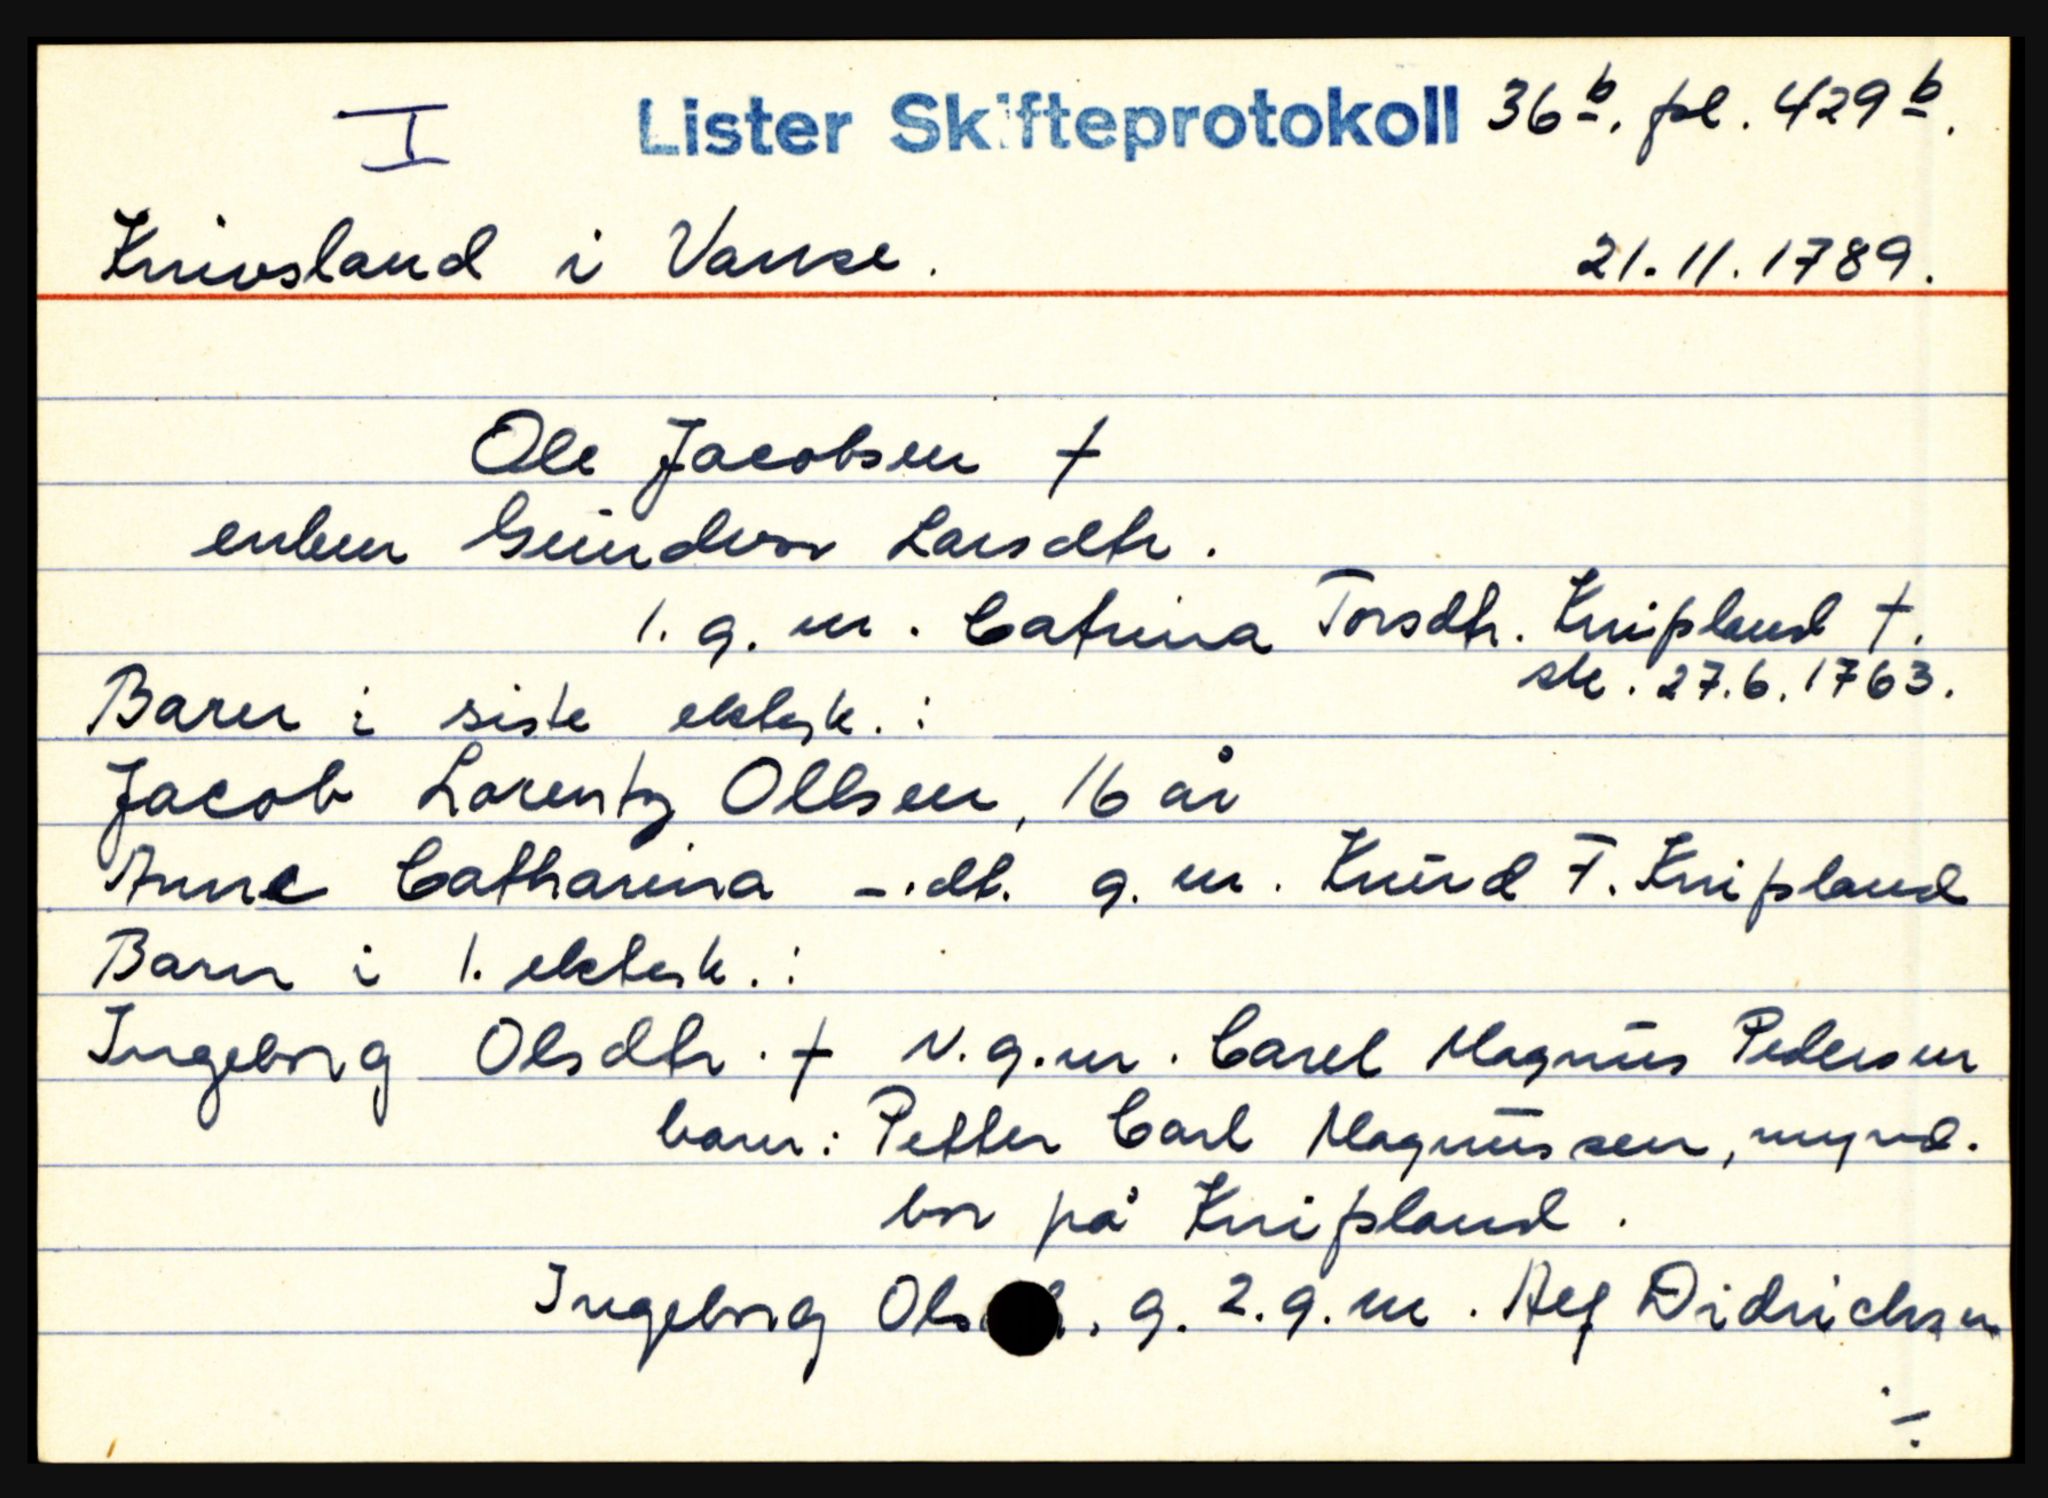 I Lister Skifteprotokoll 36 b. pl. 429 b.
Knivsland i Vanse. 21.11.1789.
Ole Jacobsen †
enken Gundvor Larsdtr.
1. g. m. Catrina Torsdtr. Knipsland †.
sk. 27.6.1763.
Barn i siste ektesk.:
Jacob Lorentz Ollsen, 16 år
Anne Catharina -.dt. g. m. Knud T. Knipsland
Barn i 1. ektesk.:
Ingeborg Olsdtr. † v. g. m. Carel Magnus Pedersen
barn: Petter Carl Magnussen, mynd.
bor på Knipsland.
Ingeborg g. 2. g. m. Alf Didrichsen